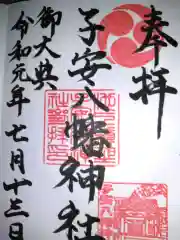 奉拝
子安八幡神社
御大典
令和元年七月十三日